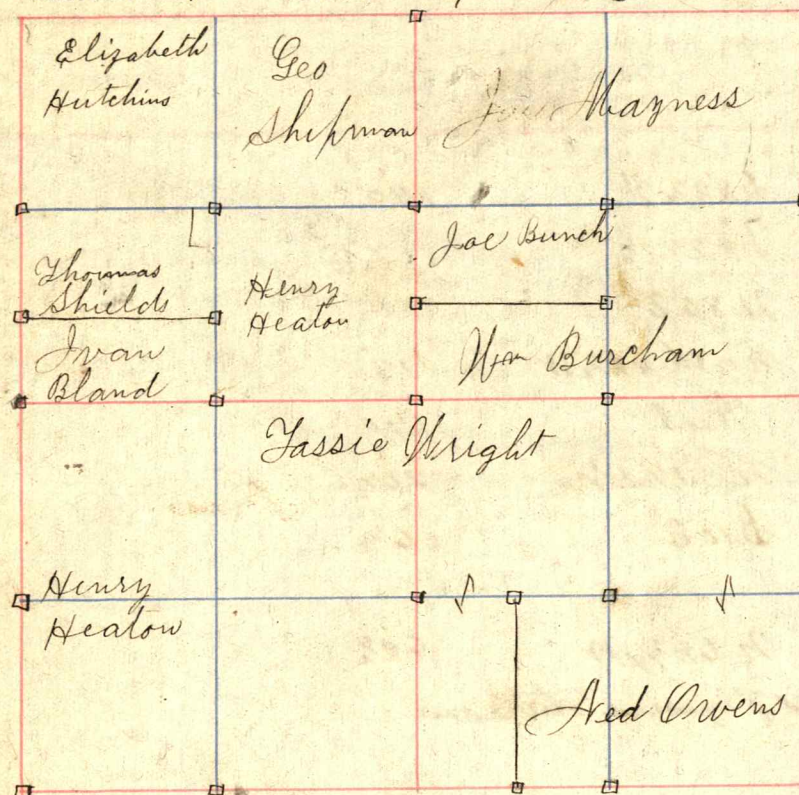 Elizabeth
Hutchins
Geo
Shipman
Mayness
Thoumas
Shields
Ivan
Bland
Henry
Heaton
Joe Bunch
Wm Burcham
Tassie Wright
Henry
Heaton
Ned Owens